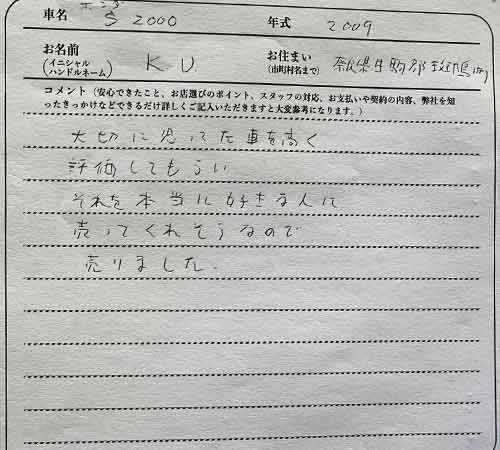 車名 ホンダ S2000 年式 2009
お名前 (イニシャル ハンドルネーム) K U お住まい (市町村名まで) 奈良県生駒郡斑鳩町
コメント(安心できたこと、お店選びのポイント、スタッフの対応、お支払いや契約の内容、弊社を知
ったきっかけなどできるだけ詳しくご記入いただきますと大変参考になります。)
大切に乗ってた車を高く
評価してもらい
それを本当に好きな人に
売ってくれそうなので
売りました。